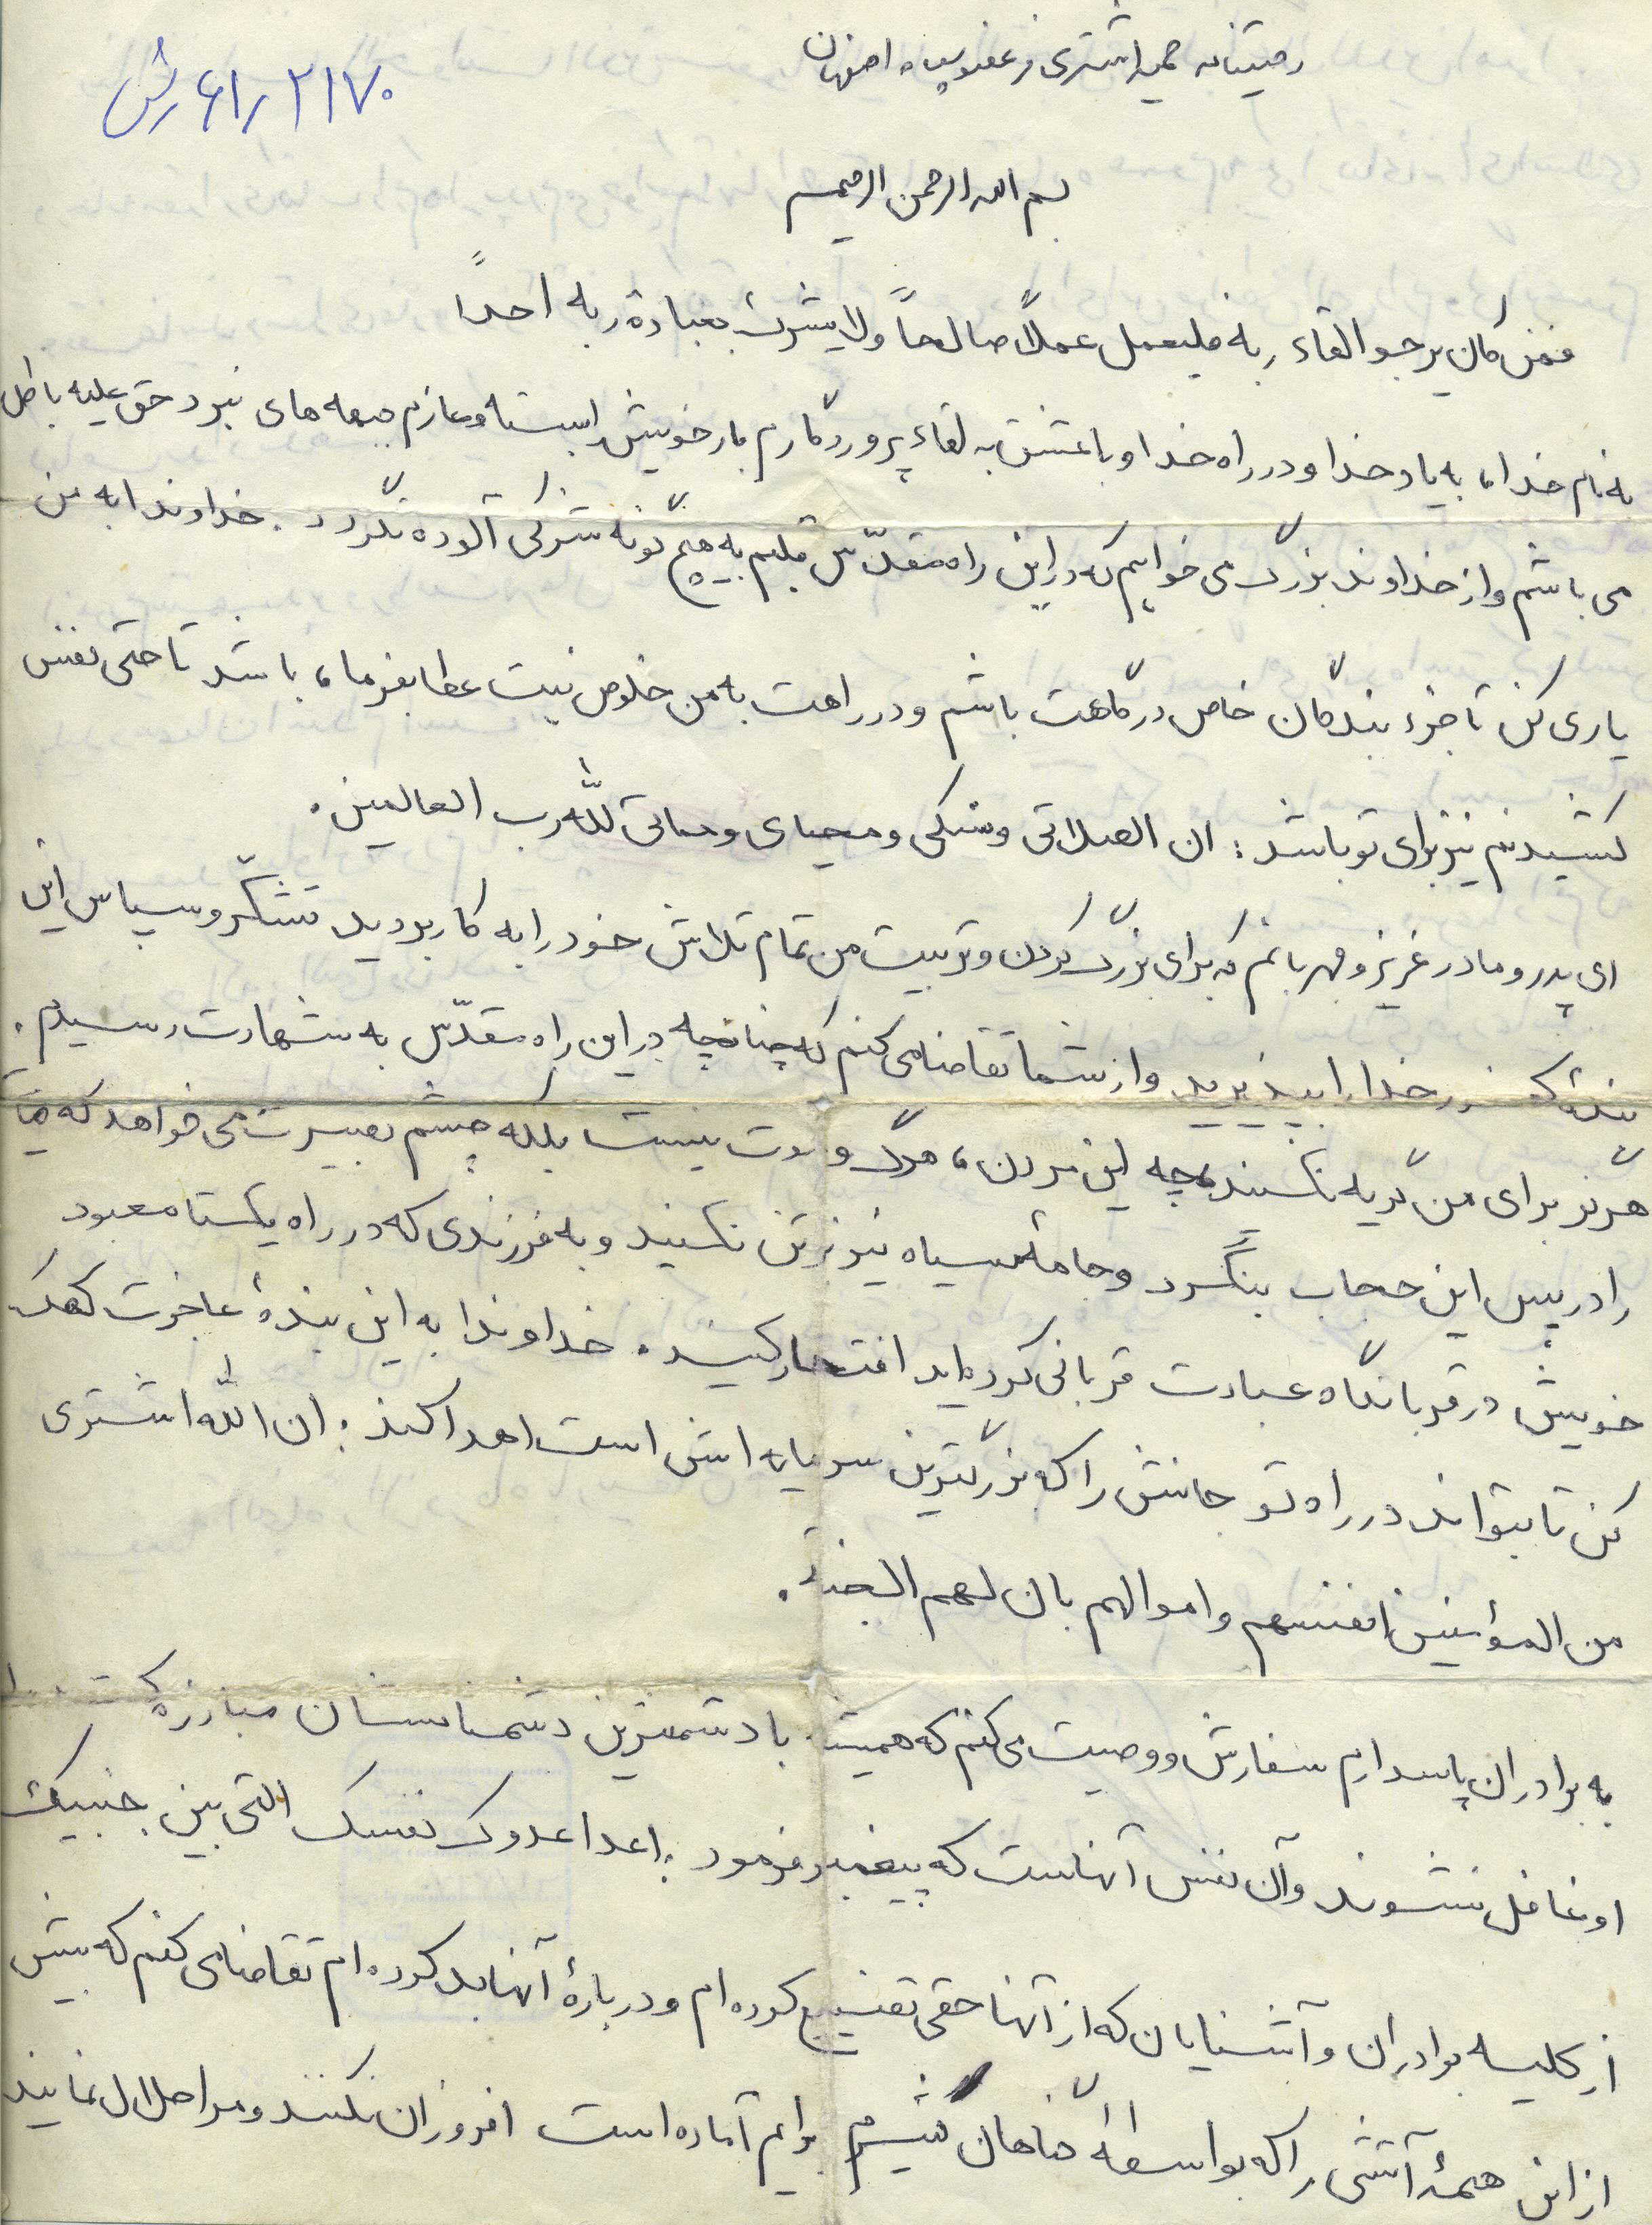 وصیتنامه حمید اشتری فر عضو سپاه اصفهان
۶۱٫۲۱۷۰ ش
بسم الله الرحمن الرحیم
فمن کان یرجو القاء ربه فلیعمل عملاً صالحاً ولا یشرک بعبادة ربه احداً
به نام خدا، به یاد خدا و در راه خدا و با عشق به لقاء پروردگارم بار خویش را بسته و عازم جبهه های نبرد حق علیه باطل
می باشم و از خداوند بزرگ می خواهم که در این راه مقدّس قلبم به هیچ گونه شرکی آلوده نگردد. خداوندا به من
یاری کن تا جزء بندگان خاص درگاهت باشم و در راهت به من خلوص نیت عطا بفرما، باشد تا حتی نفس
کشیدنم نیز برای تو باشد: ان الصلاتی و نسکی و محیای و مماتی للّه رب العالمین.
ای پدر و مادر عزیز و مهربانم که برای بزرگ کردن و تربیت من تمام تلاش خود را به کار بردید تشکّر و سپاس این
بندهٔ خدا را بپذیرید و از شما تقاضا می کنم که چنانچه در این راه مقدّس به شهادت رسیدم.
هرگز برای من گریه نکنید چه این مردن، مرگ و موت نیست بلکه چشم بصیرت می خواهد که
را در پس این حجاب بنگرد و جامهٔ سیاه نیز بر تن نکنید و به فرزندی که در راه یکتا معبود
خویش در قربانگاه عبادت قربانی کرده اید افتخار کنید. خداوندا به این بندهٔ عاجزت کمک
کن تا بتواند در راه تو جانش را که بزرگترین سرمایه اش است اهدا کند: ان اللّه اشتری
من المؤمنین انفسهم و اموالهم بان لهم الجنة.
به برادران پاسدارم سفارش و وصیت می کنم که همیشه با دشمنترین دشمنانشان مبارزه
او غافل نشوند و آن نفس آنهاست که پیغمبر فرمود: اعدا عدوک نفسک التی بین جنبیک
از کلیه برادران و آشنایان که از آنها حقی تضییع کرده ام و دربارهٔ آنها بد کرده ام تقاضا می کنم که بیش
از این همهٔ آتشی را که بواسطهٔ گناهان برایم آماده است افروزان نکنند و مرا حلال نمایند